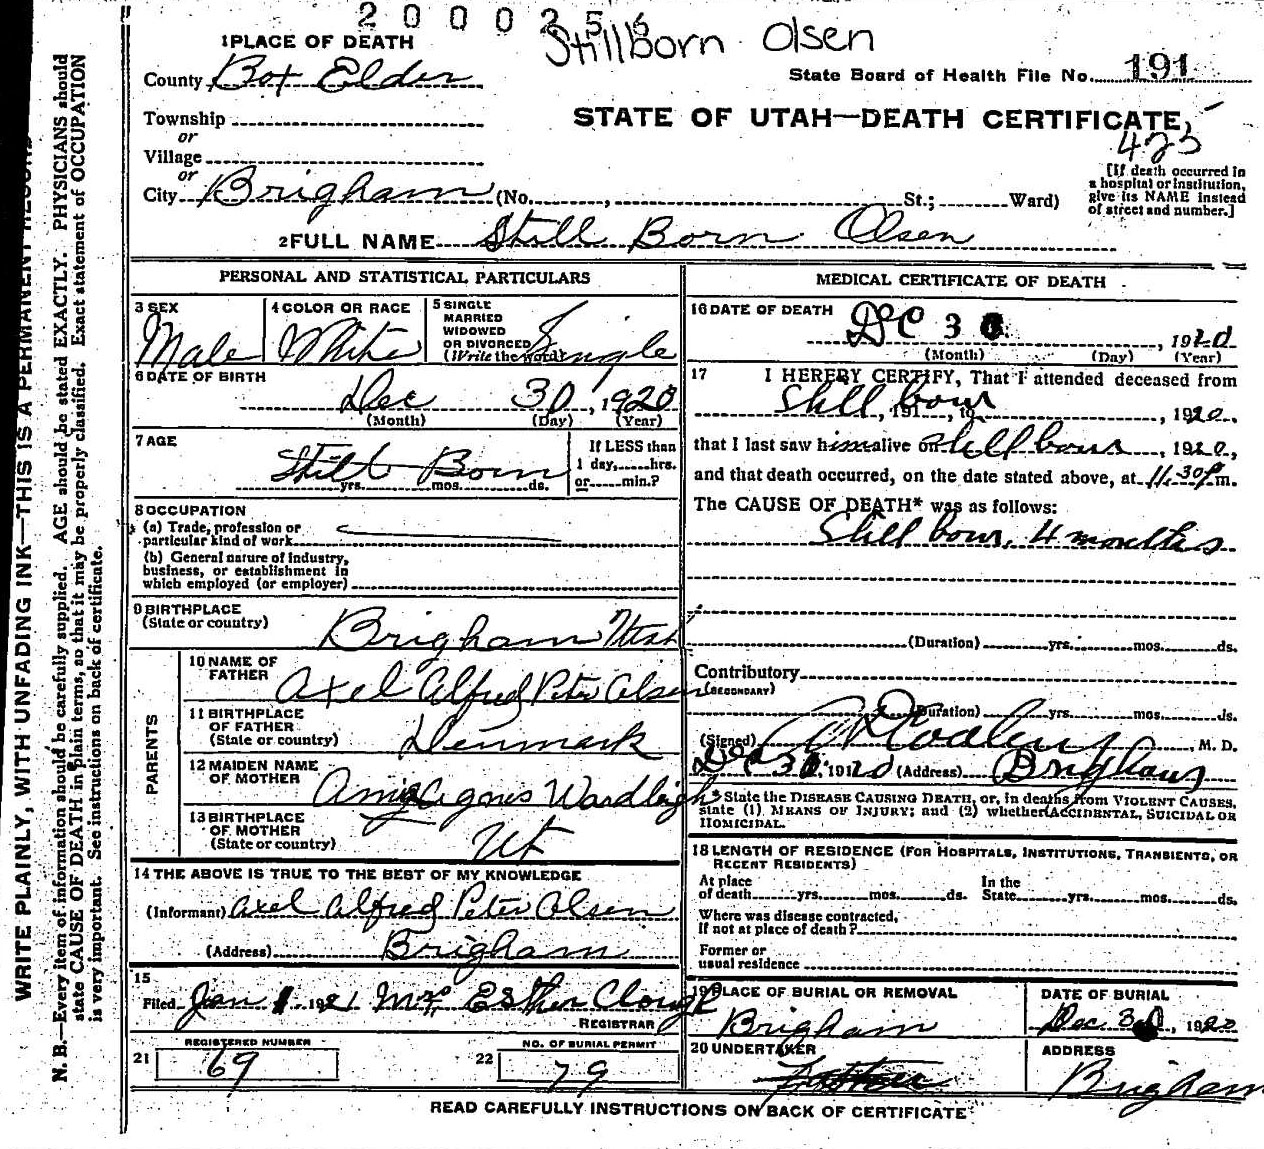 2 0 0 0 2 5 6
StillBorn Olsen
1 PLACE OF DEATH
County Box Elder
State Board of Health File No. 191
Township
or
Village
or
City Brigham (No. , St.; Ward)
STATE OF UTAH—DEATH CERTIFICATE,
425
[If death occurred in
a hospital or institution,
give its NAME instead
of street and number.]
2 FULL NAME Still Born Olsen
PERSONAL AND STATISTICAL PARTICULARS
3 SEX
Male
4 COLOR OR RACE
White
5 SINGLE
MARRIED
WIDOWED
OR DIVORCED
(Write the word) Single
6 DATE OF BIRTH
Dec 30, 1920
(Month) (Day) (Year)
7 AGE
Still Born
yrs. mos. ds.
If LESS than
1 day, hrs.
or min.?
8 OCCUPATION
(a) Trade, profession or
particular kind of work
(b) General nature of industry,
business, or establishment in
which employed (or employer)
9 BIRTHPLACE
(State or country)
Brigham Utah
PARENTS
10 NAME OF
FATHER
Axel Alfred Peter Olsen
11 BIRTHPLACE
OF FATHER
(State or country)
Denmark
12 MAIDEN NAME
OF MOTHER
Agnes Wardleigh
13 BIRTHPLACE
OF MOTHER
(State or country)
Ut
14 THE ABOVE IS TRUE TO THE BEST OF MY KNOWLEDGE
(Informant) Axel Alfred Peter Olsen
(Address) Brigham
15
Filed Jan 1 1921 Esther Clough
REGISTRAR
21
REGISTERED NUMBER
69
22
NO. OF BURIAL PERMIT
79
MEDICAL CERTIFICATE OF DEATH
16 DATE OF DEATH
Dec 3 , 1920
(Month) (Day) (Year)
17 I HEREBY CERTIFY, That I attended deceased from
Still born, 191 , to , 1920,
that I last saw him alive on still born, 1920,
and that death occurred, on the date stated above, at 11.30 P m.
The CAUSE OF DEATH* was as follows:
Still born, 4 months
(Duration) yrs. mos. ds.
Contributory
(SECONDARY)
(Duration) yrs. mos. ds.
(Signed) , M. D.
Dec 3 , 1920 (Address) Brigham
* State the DISEASE CAUSING DEATH, or, in deaths from VIOLENT CAUSES,
state (1) MEANS OF INJURY; and (2) whether ACCIDENTAL, SUICIDAL OR
HOMICIDAL.
18 LENGTH OF RESIDENCE (FOR HOSPITALS, INSTITUTIONS, TRANSIENTS, OR
RECENT RESIDENTS)
At place
of death yrs. mos. ds.
In the
State yrs. mos. ds.
Where was disease contracted,
If not at place of death?
Former or
usual residence
19 PLACE OF BURIAL OR REMOVAL
Brigham
DATE OF BURIAL
Dec. 30, 1920
20 UNDERTAKER
ADDRESS
Brigham
READ CAREFULLY INSTRUCTIONS ON BACK OF CERTIFICATE
WRITE PLAINLY, WITH UNFADING INK—THIS IS A PERMANENT RECORD
N. B.—Every item of information should be carefully supplied. AGE should be stated EXACTLY. PHYSICIANS should
state CAUSE OF DEATH in plain terms, so that it may be properly classified. Exact statement of OCCUPATION
is very important. See instructions on back of certificate.